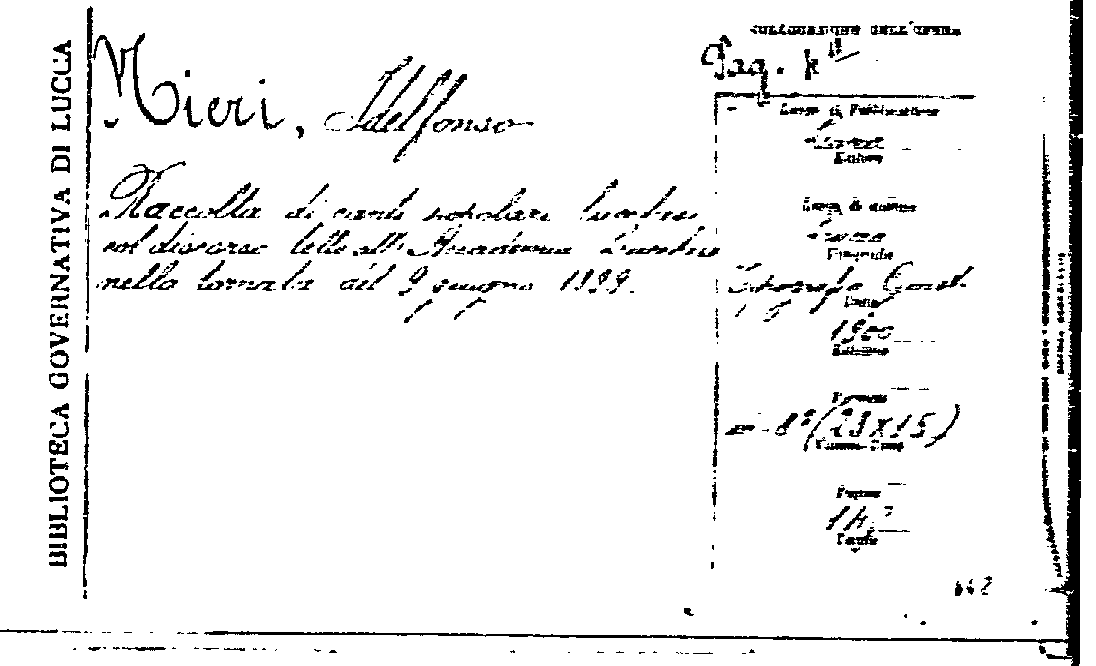 BIBLIOTECA GOVERNATIVA DI LUCCA
Nieri, Idelfonso
Raccolta di canti popolari lucchesi
col discorso letto all' Accademia Lucchese
nella tornata del 9 giugno 1899.
COLLOCAZIONE DELL'OPERA
Pag. k
Luogo di Pubblicazione
Lucca
Editore
Luogo di edizione
Lucca
Tipografia
Tipografia
Data
1900
Edizione
Formato
8° (23X15)
Pagine